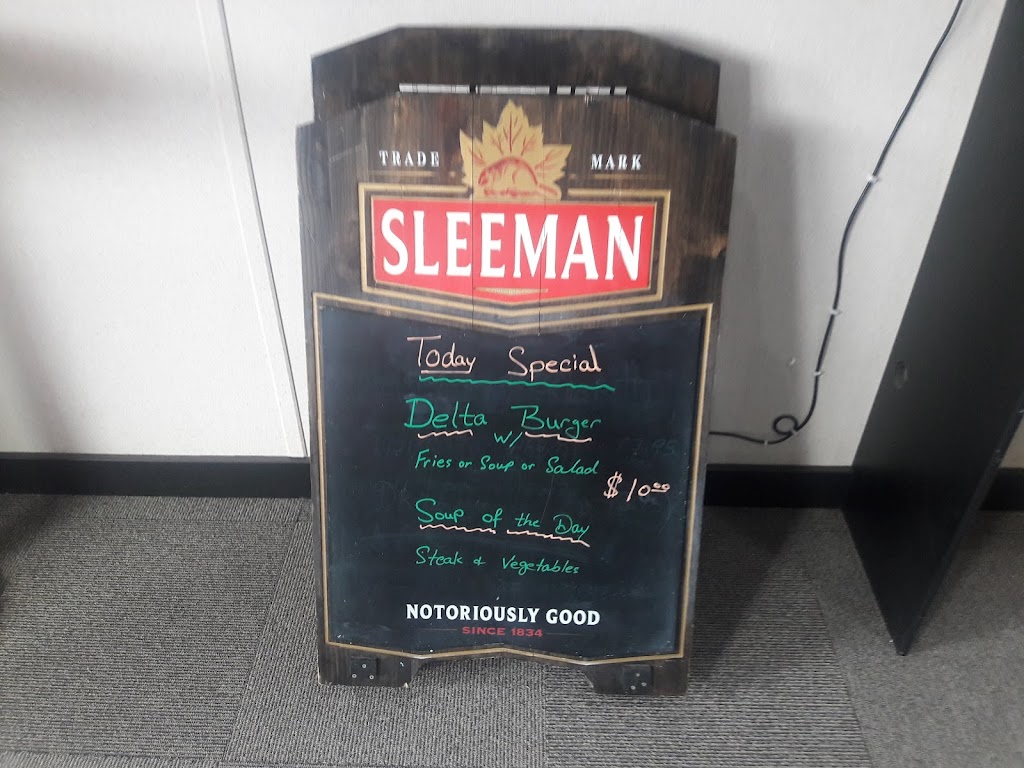 TRADE MARK
SLEEMAN
Today Special
Delta Burger
w/
Fries or Soup or Salad
$10.00
Soup of the Day
Steak & Vegetables
NOTORIOUSLY GOOD
SINCE 1834